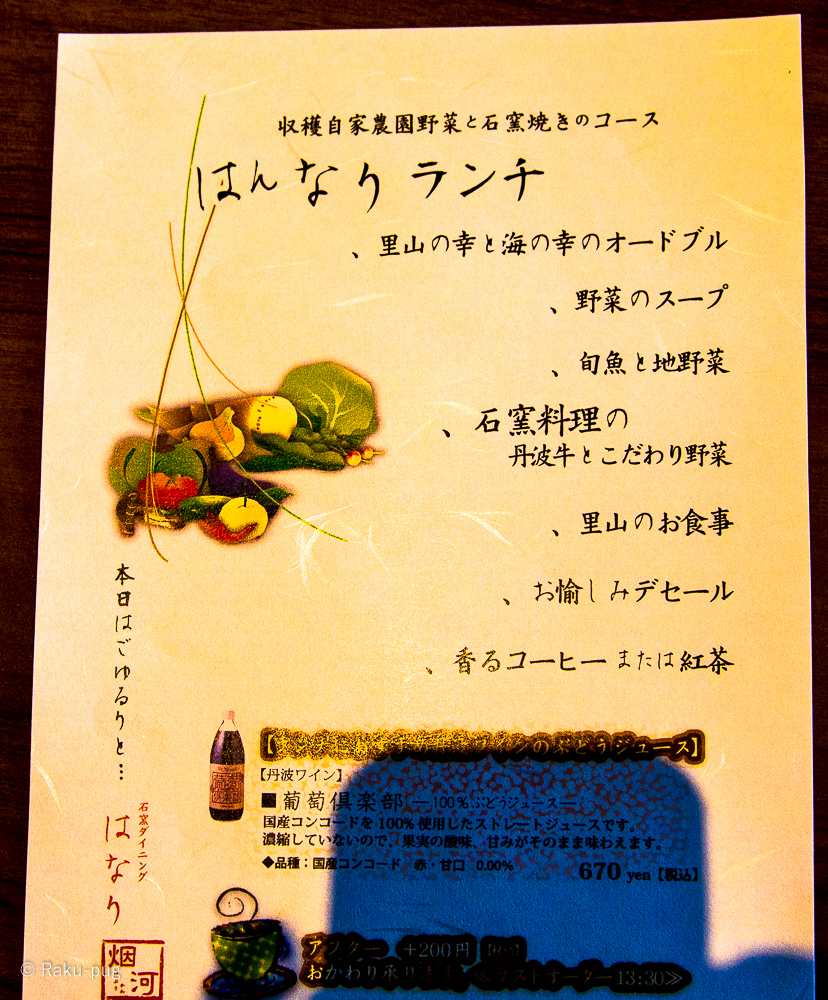 収穫自家農園野菜と石窯焼きのコース
はんなりランチ
、里山の幸と海の幸のオードブル
、野菜のスープ
、旬魚と地野菜
、石窯料理の
丹波牛とこだわり野菜
、里山のお食事
、お愉しみデセール
、香るコーヒーまたは紅茶
本日はごゆるりと…
石窯ダイニング
はなり
烟河
インのぶどうジュース】
【丹波ワイン】
■葡萄倶楽部 ―100%ぶどうジュース―
国産コンコードを100%使用したストレートジュースです。
濃縮していないので、果実の酸味、甘みがそのまま味わえます。
◆品種：国産コンコード 赤・甘口 0.00%
670 yen【税込】
アフター +200円
おかわり承ります ラストオーダー13:30≫
© Raku-pug